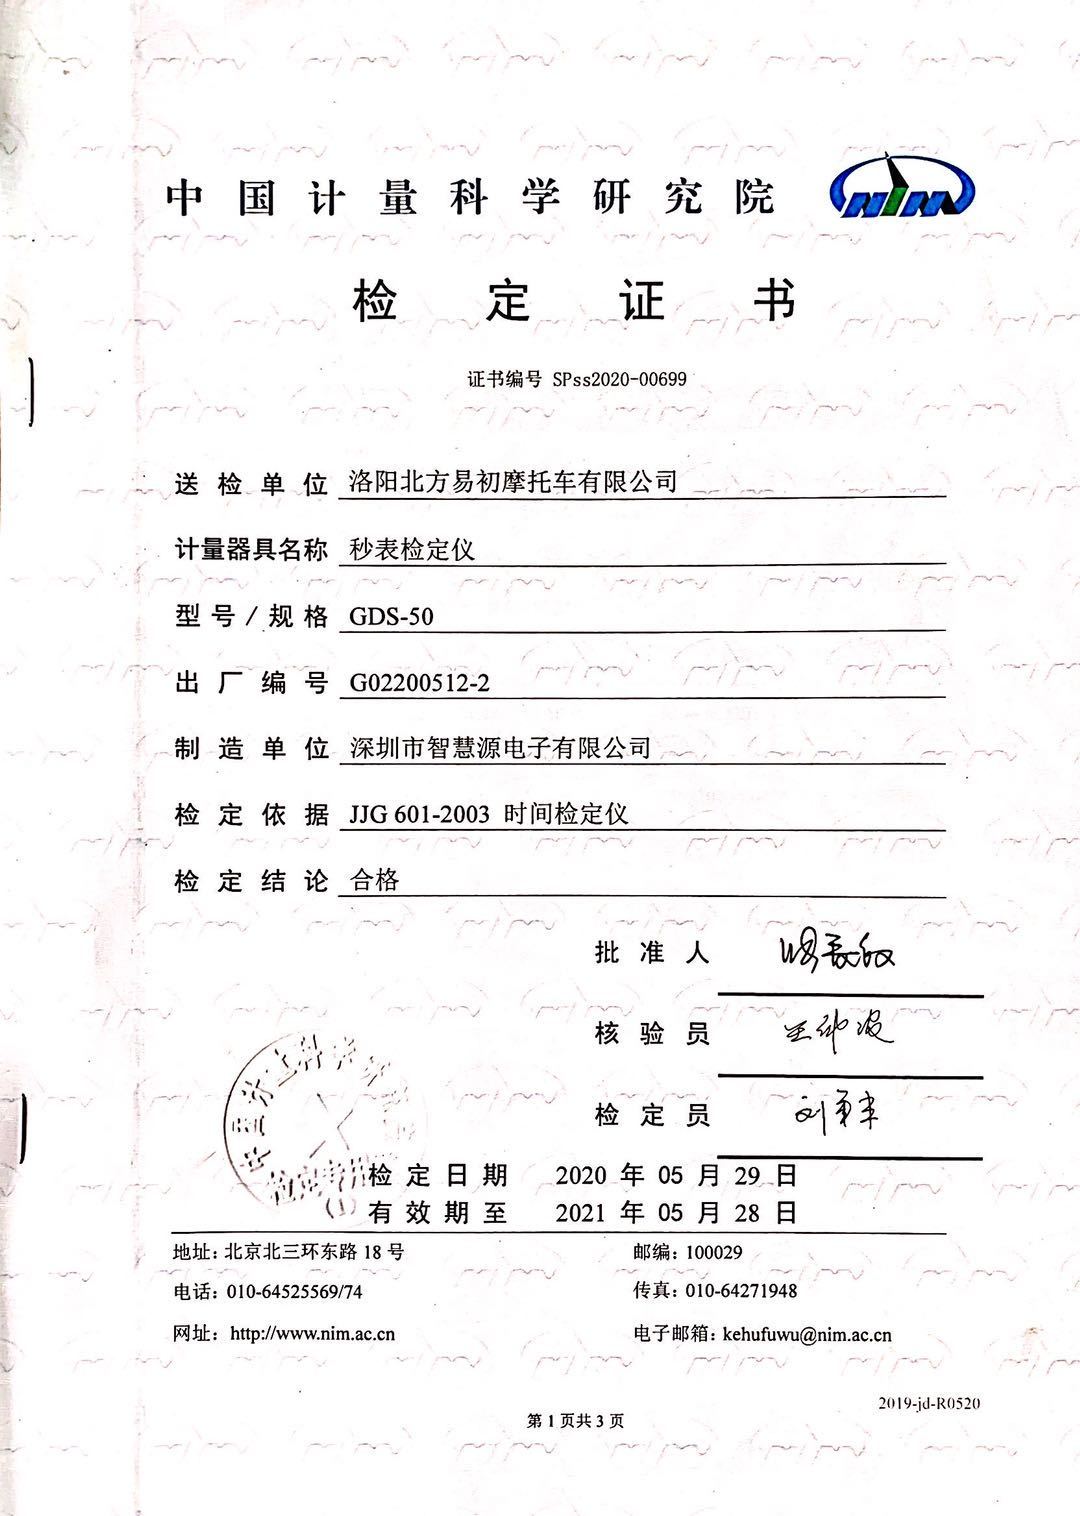 中国计量科学研究院
NIM
检定证书
证书编号 SPss2020-00699
送检单位 洛阳北方易初摩托车有限公司
计量器具名称 秒表检定仪
型号/规格 GDS-50
出厂编号 G02200512-2
制造单位 深圳市智慧源电子有限公司
检定依据 JJG 601-2003 时间检定仪
检定结论 合格
批准人
核验员
检定员
检定日期 2020 年 05 月 29 日
有效期至 2021 年 05 月 28 日
地址：北京北三环东路 18 号 邮编：100029
电话：010-64525569/74 传真：010-64271948
网址：http://www.nim.ac.cn 电子邮箱：kehufuwu@nim.ac.cn
2019-jd-R0520
第 1 页共 3 页